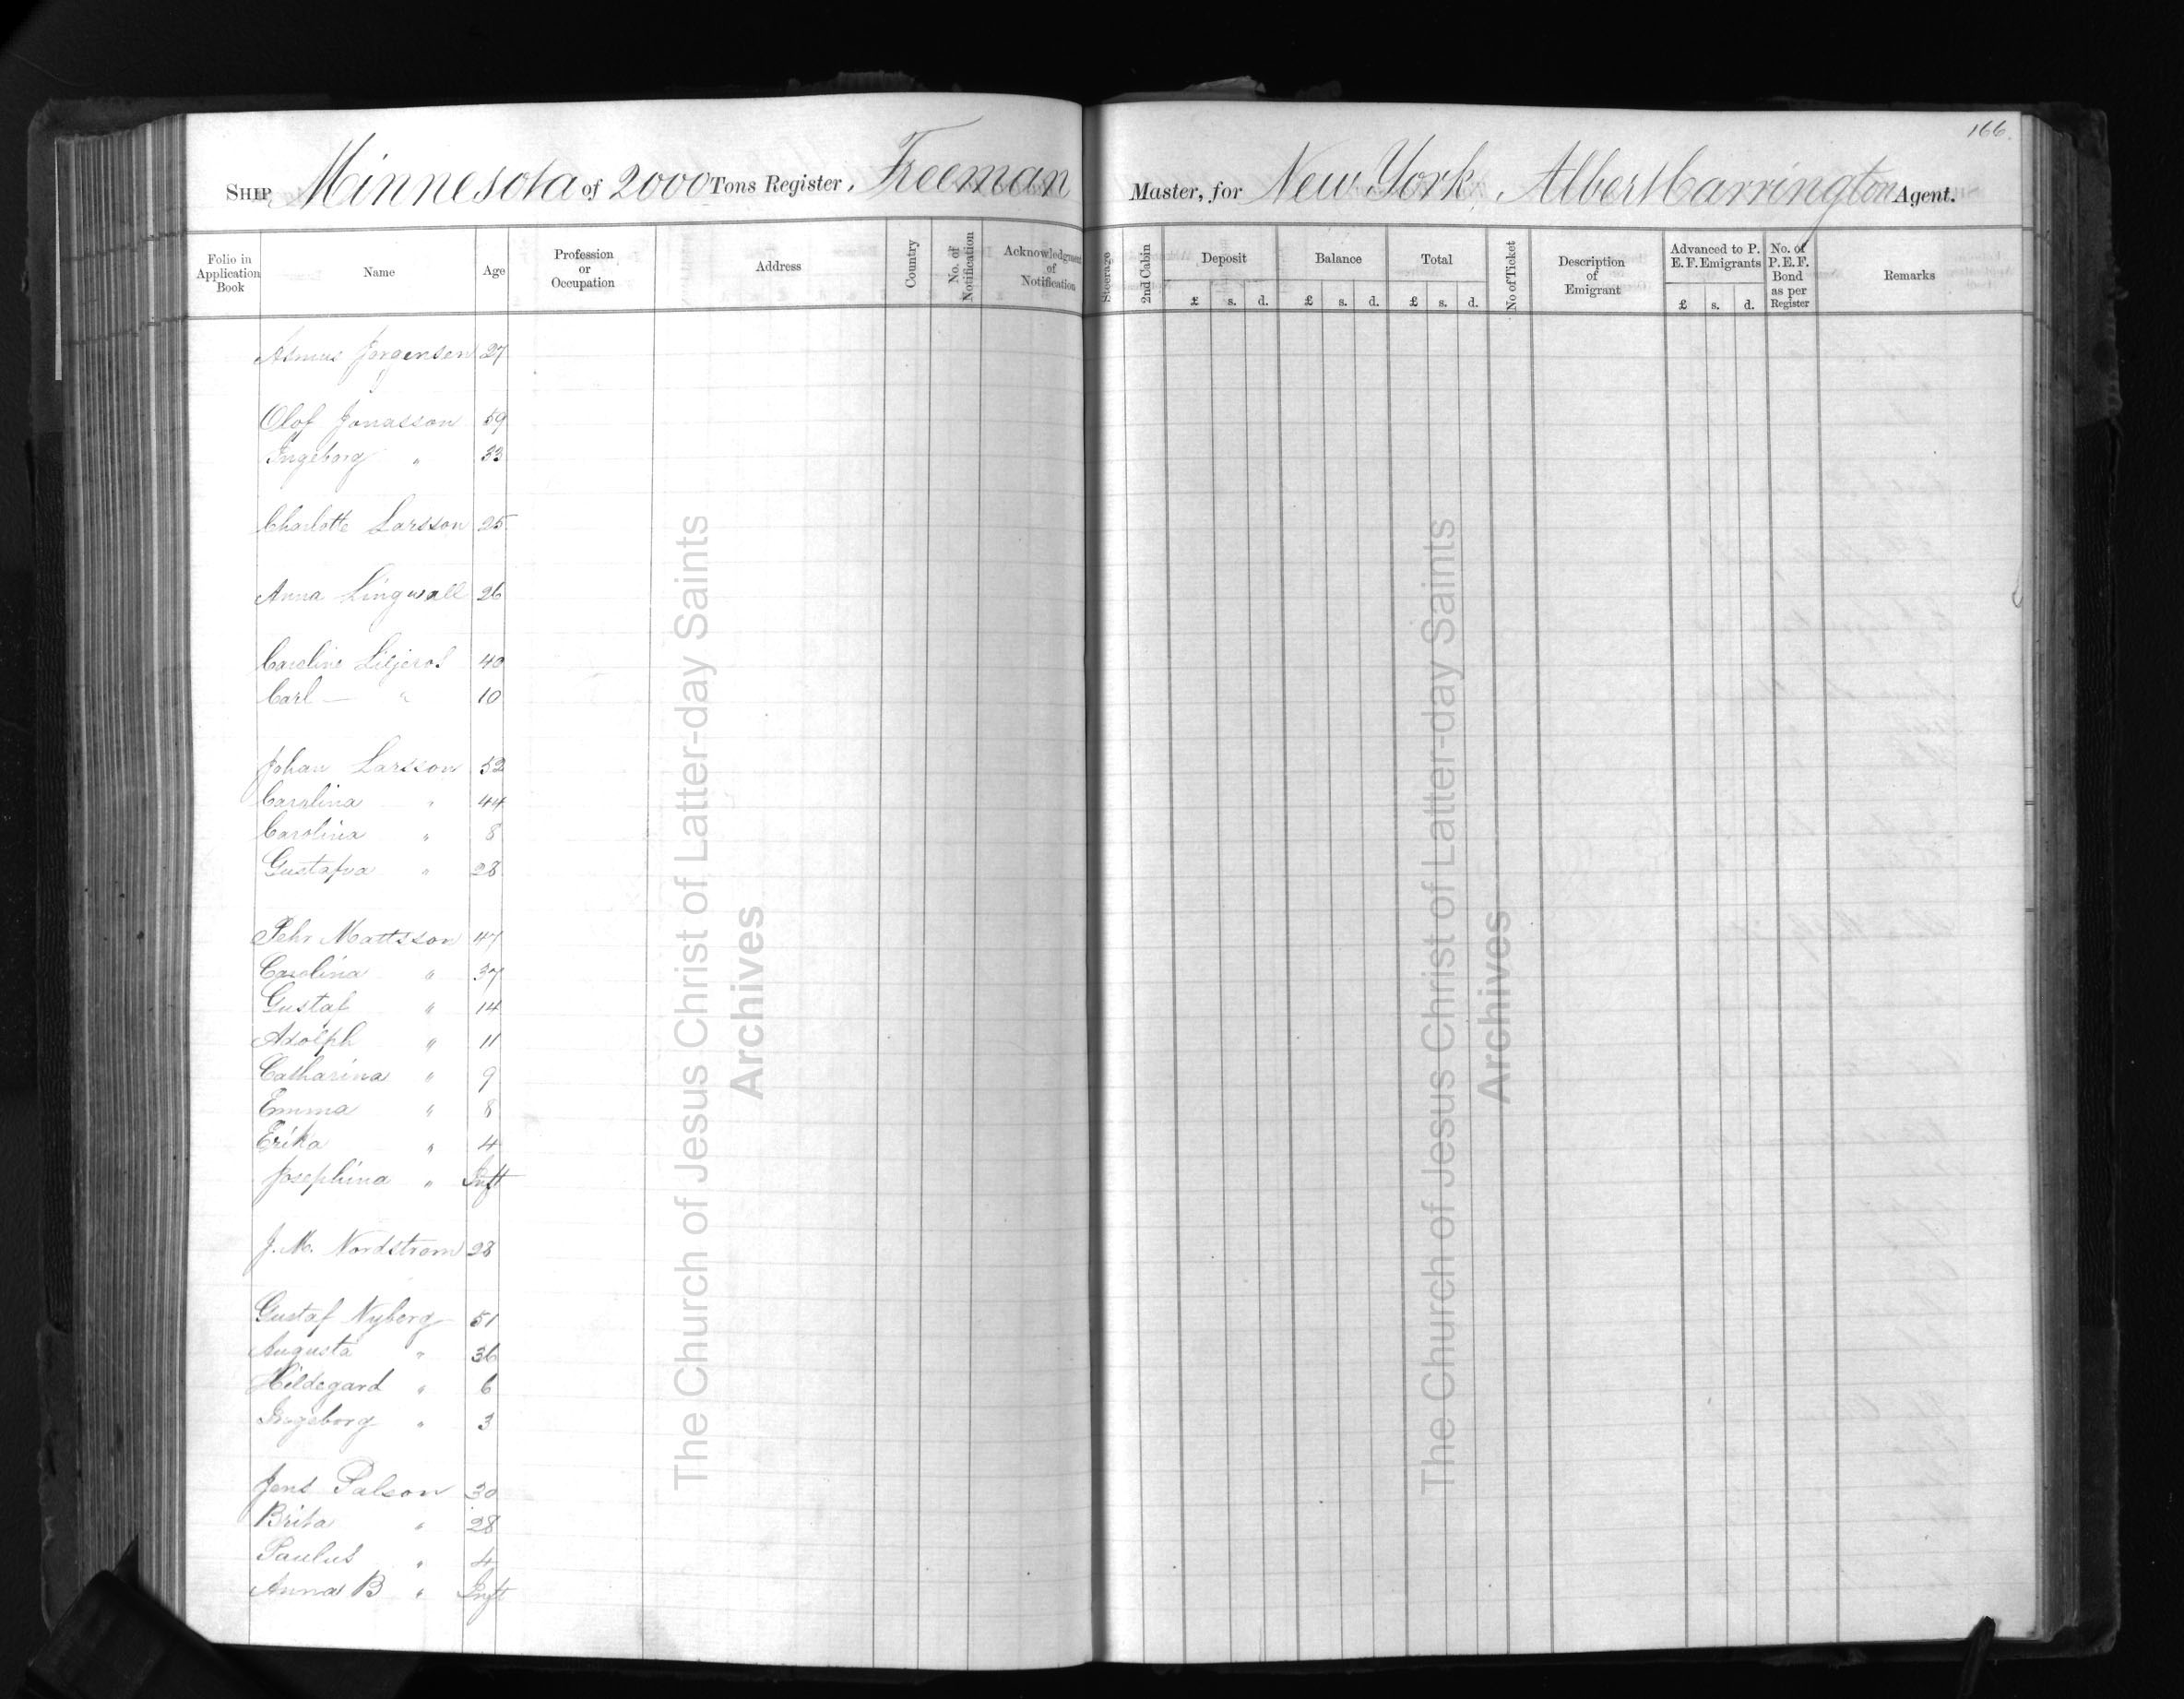 166.
SHIP Minnesota of 2000 Tons Register, Freeman Master, for New York, Albert Carrington Agent.
Folio in Application Book Name Age Profession or Occupation Address Country No. of Notification Acknowledgment of Notification Steerage 2nd Cabin Deposit Balance Total No of Ticket Description of Emigrant Advanced to P. E. F. Emigrants No. of P. E. F. Bond as per Register Remarks
£ s. d. £ s. d. £ s. d. £ s. d.
Asmus Jorgensen 27
Olof Jonasson 59
Ingeborg " 33
Charlotte Larsson 25
Anna Lingwall 26
Caroline 40
Carl — " 10
Johan Larsson 52
Carolina " 44
Carolina " 8
Gustafva " 28
Pehr Mattsson 47
Carolina " 37
Gustaf " 14
Adolph " 11
Catharina " 9
Emma " 8
Erika " 4
Josephina " Inft
J. M. Nordstrom 28
Gustaf Nyborg 51
Augusta " 36
Hildegard " 6
Ingeborg " 3
Jens Palson 30
Brita " 28
Paulus " 4
Anna B " Inft
The Church of Jesus Christ of Latter-day Saints
Archives
The Church of Jesus Christ of Latter-day Saints
Archives